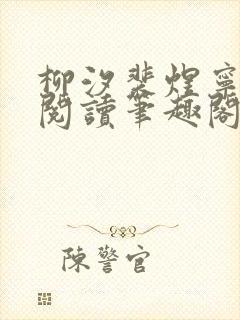 柳汐裴煌寧
閱讀筆趣閣
陳警官